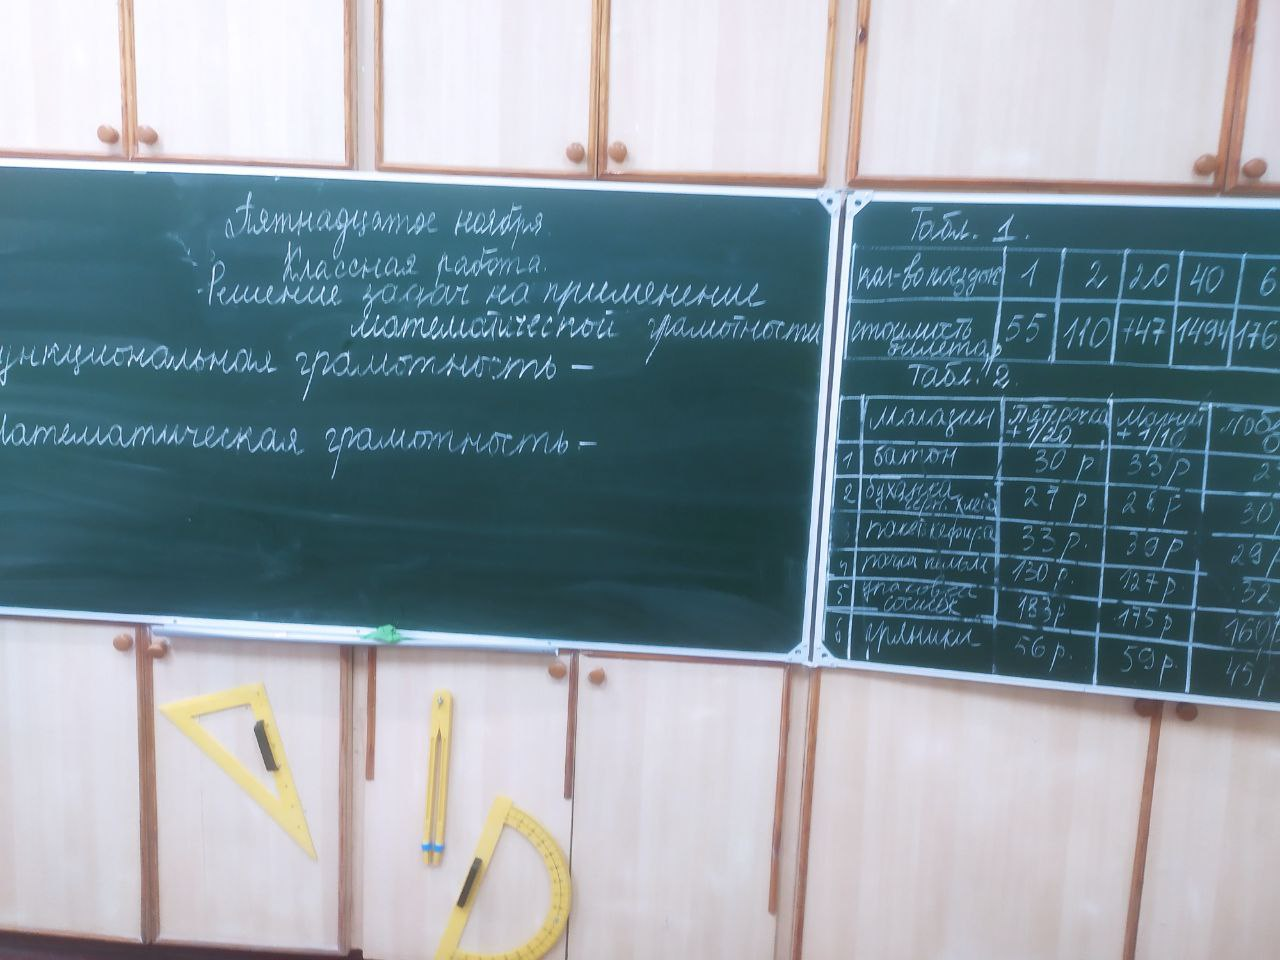 Пятнадцатое ноября.
Классная работа.
Решение задач на применение
математической грамотности
ункциональная грамотность –
атематическая грамотность –
Табл. 1.
кол-во поездок 1 2 20 40 6
стоимость билета р 55 110 747 1494 176
Табл. 2.
магазин Пятерочка + 1/20 Магнит + 1/10
1 батон 30 р 33 р 2
2 буханка черн. хлеба 27 р 30
пакет кефира 33 р. 39 р 29 р
пачка пельм 130 р. 127 р 32
5 упаковка сосисок 183 р 175 р 169
6 пряники 56 р. 59 р. 45 р